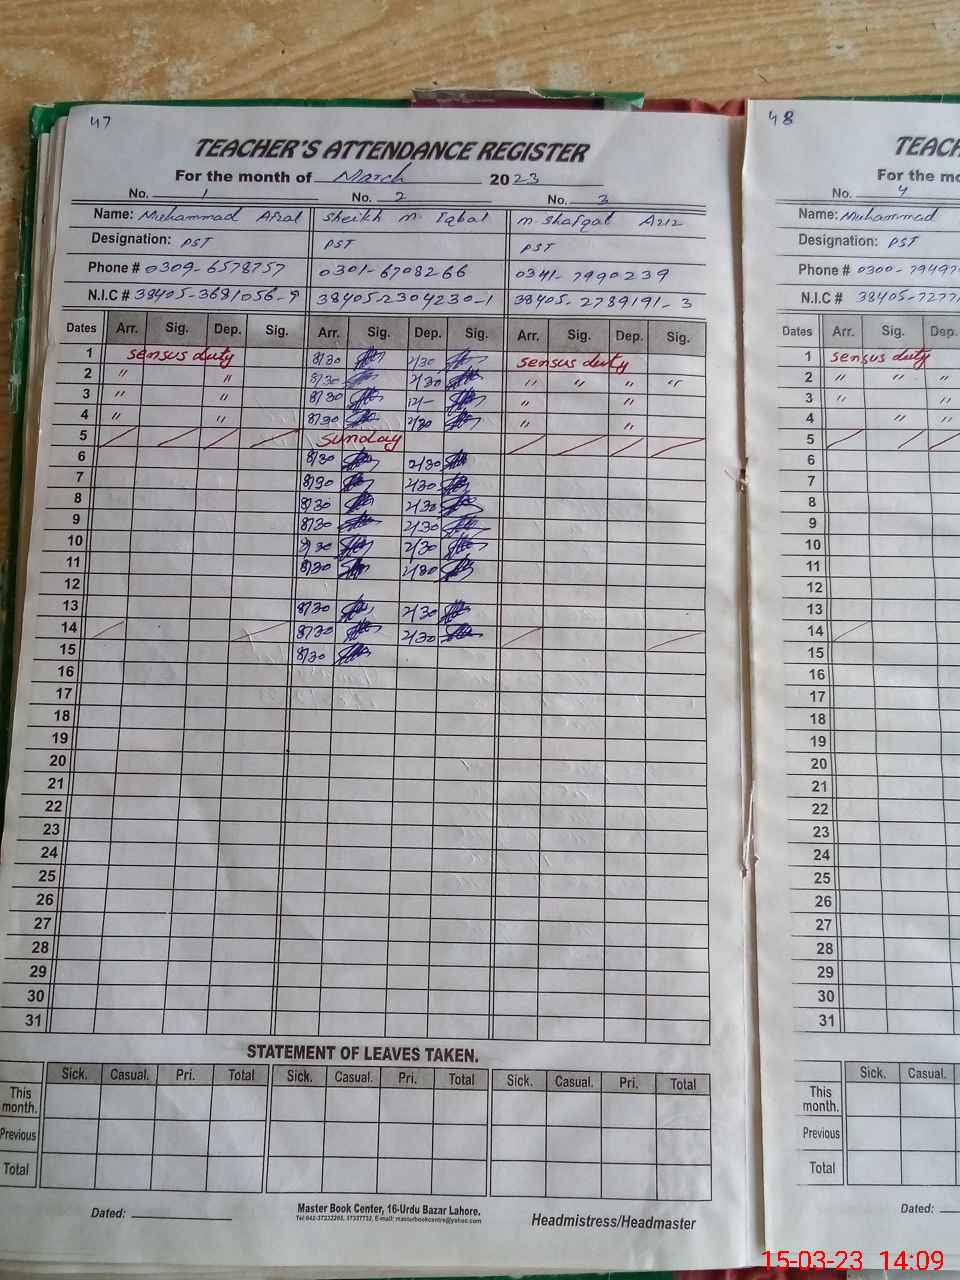 47
TEACHER'S ATTENDANCE REGISTER
For the month of March 2023
No. 1 No. 2 No. 3
Name: Muhammad Afzal Sheikh M. Iqbal M. Shafqat Aziz
Designation: PST PST PST
Phone # 0309-6578757 0301-6708266 0341-7990239
N.I.C # 38405-3681056-9 38405-2304230-1 38405-2789191-3
Dates Arr. Sig. Dep. Sig. Arr. Sig. Dep. Sig. Arr. Sig. Dep. Sig.
1 sensus duty 8/30 2/30 sensus duty
2 " " 8/30 2/30 " " " "
3 " " 8/30 12/- " "
4 " " 8/30 2/30 " "
5 Sunday
6 8/30 2/30
7 8/30 2/30
8 8/30 2/30
9 8/30 2/30
10 8/30 2/30
11 8/30 2/30
12
13 8/30 2/30
14 8/30 2/30
15 8/30
16
17
18
19
20
21
22
23
24
25
26
27
28
29
30
31
STATEMENT OF LEAVES TAKEN.
Sick. Casual. Pri. Total Sick. Casual. Pri. Total Sick. Casual. Pri. Total
This month.
Previous
Total
Dated:
Master Book Center, 16-Urdu Bazar Lahore.
Headmistress/Headmaster
48
TEACH
For the m
No. 4
Name: Muhammad
Designation: PST
Phone # 0300-79497
N.I.C # 38405-7277
Dates Arr. Sig. Dep.
1 sensus duty
2 " " "
3 " "
4 " "
5
6
7
8
9
10
11
12
13
14
15
16
17
18
19
20
21
22
23
24
25
26
27
28
29
30
31
Sick. Casual.
This month.
Previous
Total
Dated:
15-03-23 14:09